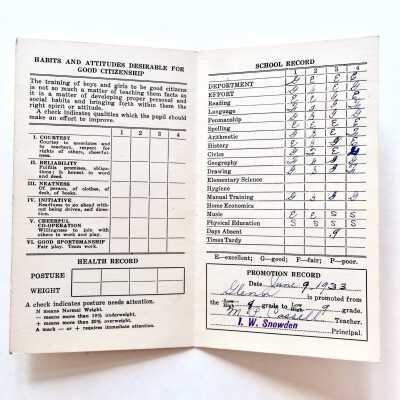 HABITS AND ATTITUDES DESIRABLE FOR
GOOD CITIZENSHIP
The training of boys and girls to be good citizens
is not so much a matter of teaching them facts as
it is a matter of developing proper personal and
social habits and bringing forth within them the
right spirit or attitude.
A check indicates qualities which the pupil should
make an effort to improve.
1 2 3 4
I. COURTESY
Courtesy to associates and
to teachers, respect for
rights of others, cheerful-
ness.
II. RELIABILITY
Fulfills promises, obliga-
tions; is honest in word
and deed.
III. NEATNESS
Of person, of clothes, of
desk, of books.
IV. INITIATIVE
Readiness to go ahead with-
out being driven, self direc-
tion.
V. CHEERFUL
CO-OPERATION
Willingness to join with
others in work and play.
VI. GOOD SPORTSMANSHIP
Fair play. Team work.
HEALTH RECORD
POSTURE
WEIGHT
A check indicates posture needs attention.
N means Normal Weight.
— means more than 10% underweight.
+ means more than 20% overweight.
A mark — or + requires immediate attention.
SCHOOL RECORD
1 2 3 4
DEPARTMENT
EFFORT
Reading
Language
Penmanship
Spelling
Arithmetic
History
Civics
Geography
Drawing
Elementary Science
Hygiene
Manual Training
Home Economics
Music E E S S
Physical Education S S S S
Days Absent
Times Tardy
E—excellent; G—good; F—fair; P—poor.
PROMOTION RECORD
Date June 9, 1933
Glenn is promoted from
the Low High grade to Low High 9 grade.
M. P. Cassell Teacher.
I. W. Snowden
Principal.